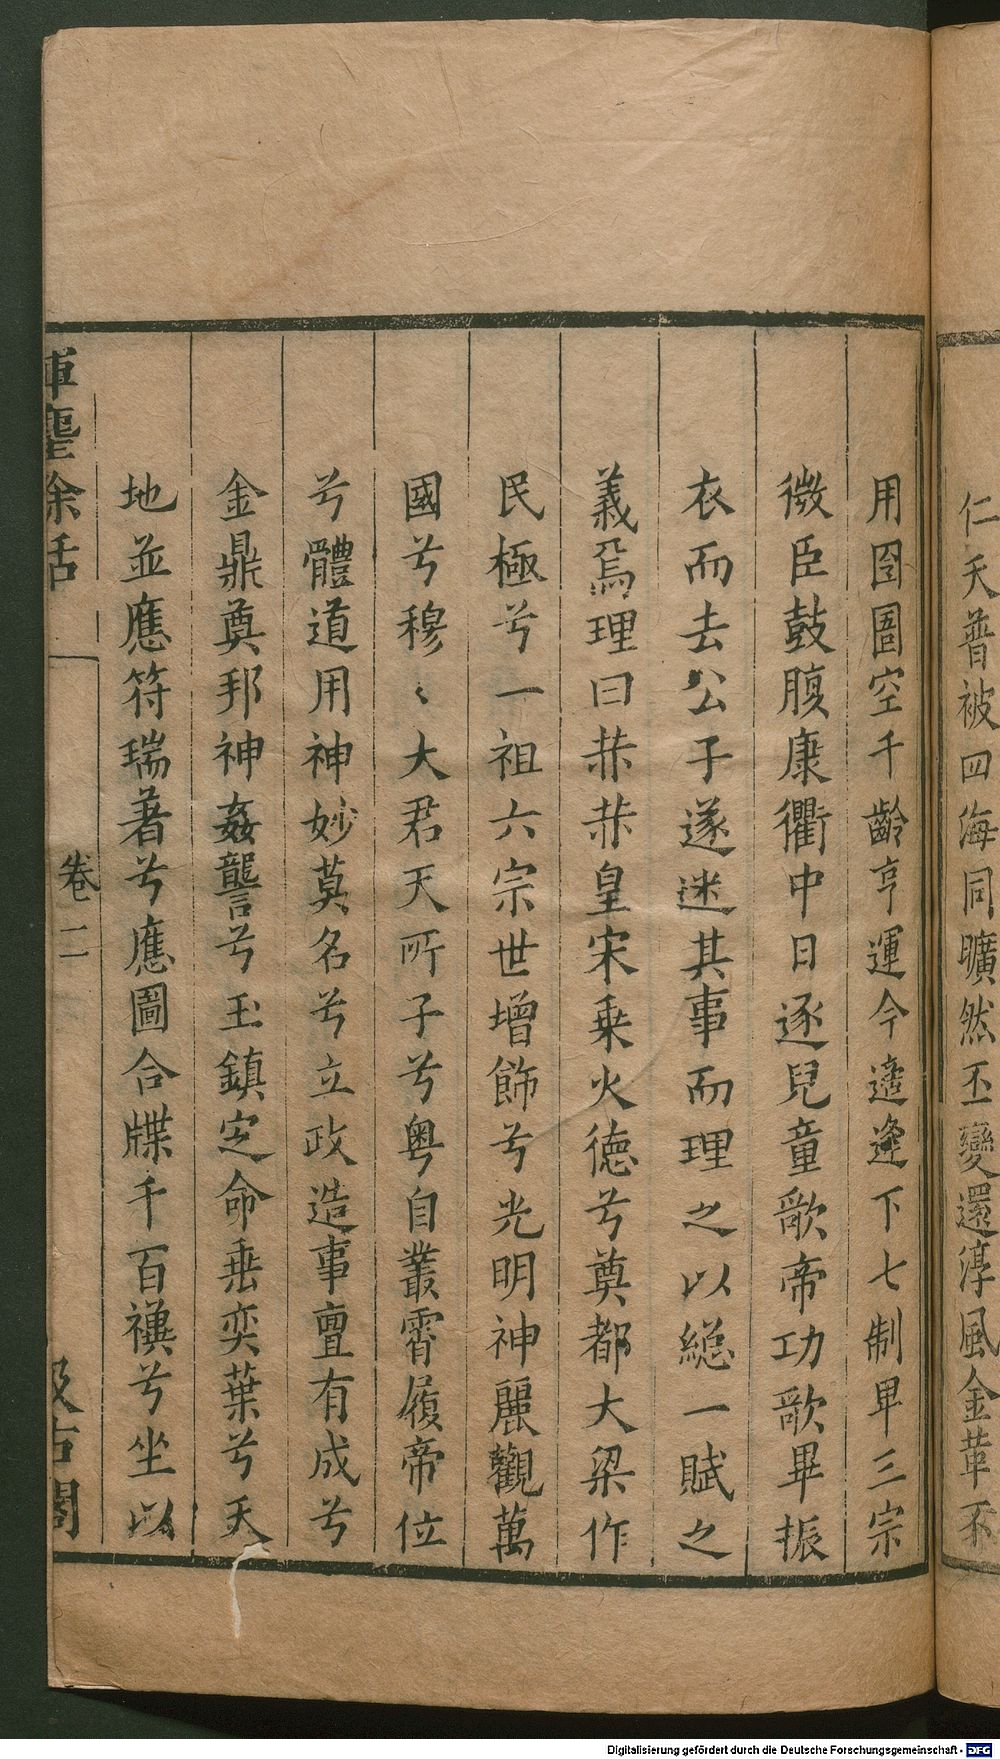 仁天普被四海同曠然丕變還淳風金革不
用囹圄空千齡亨運今遭逢下七制卑三宗
微臣鼓腹康衢中日逐兒童歌帝功歌畢振
衣而去公子遂迷其事而理之以緫一賦之
義焉理曰恭恭皇宋乗火德兮奠都大梁作
民極兮一祖六宗世增飾兮光明神麗觀萬
國兮穆〻大君天所子兮粤自叢霄履帝位
兮體道用神妙莫名兮立政造事亶有成兮
金鼎奠邦神姦讋兮玉鎮定命垂奕葉兮天
地並應符瑞著兮應圖合牒千百禩兮坐以
揮麈余話
卷二
汲古閣
Digitalisierung gefördert durch die Deutsche Forschungsgemeinschaft - DFG